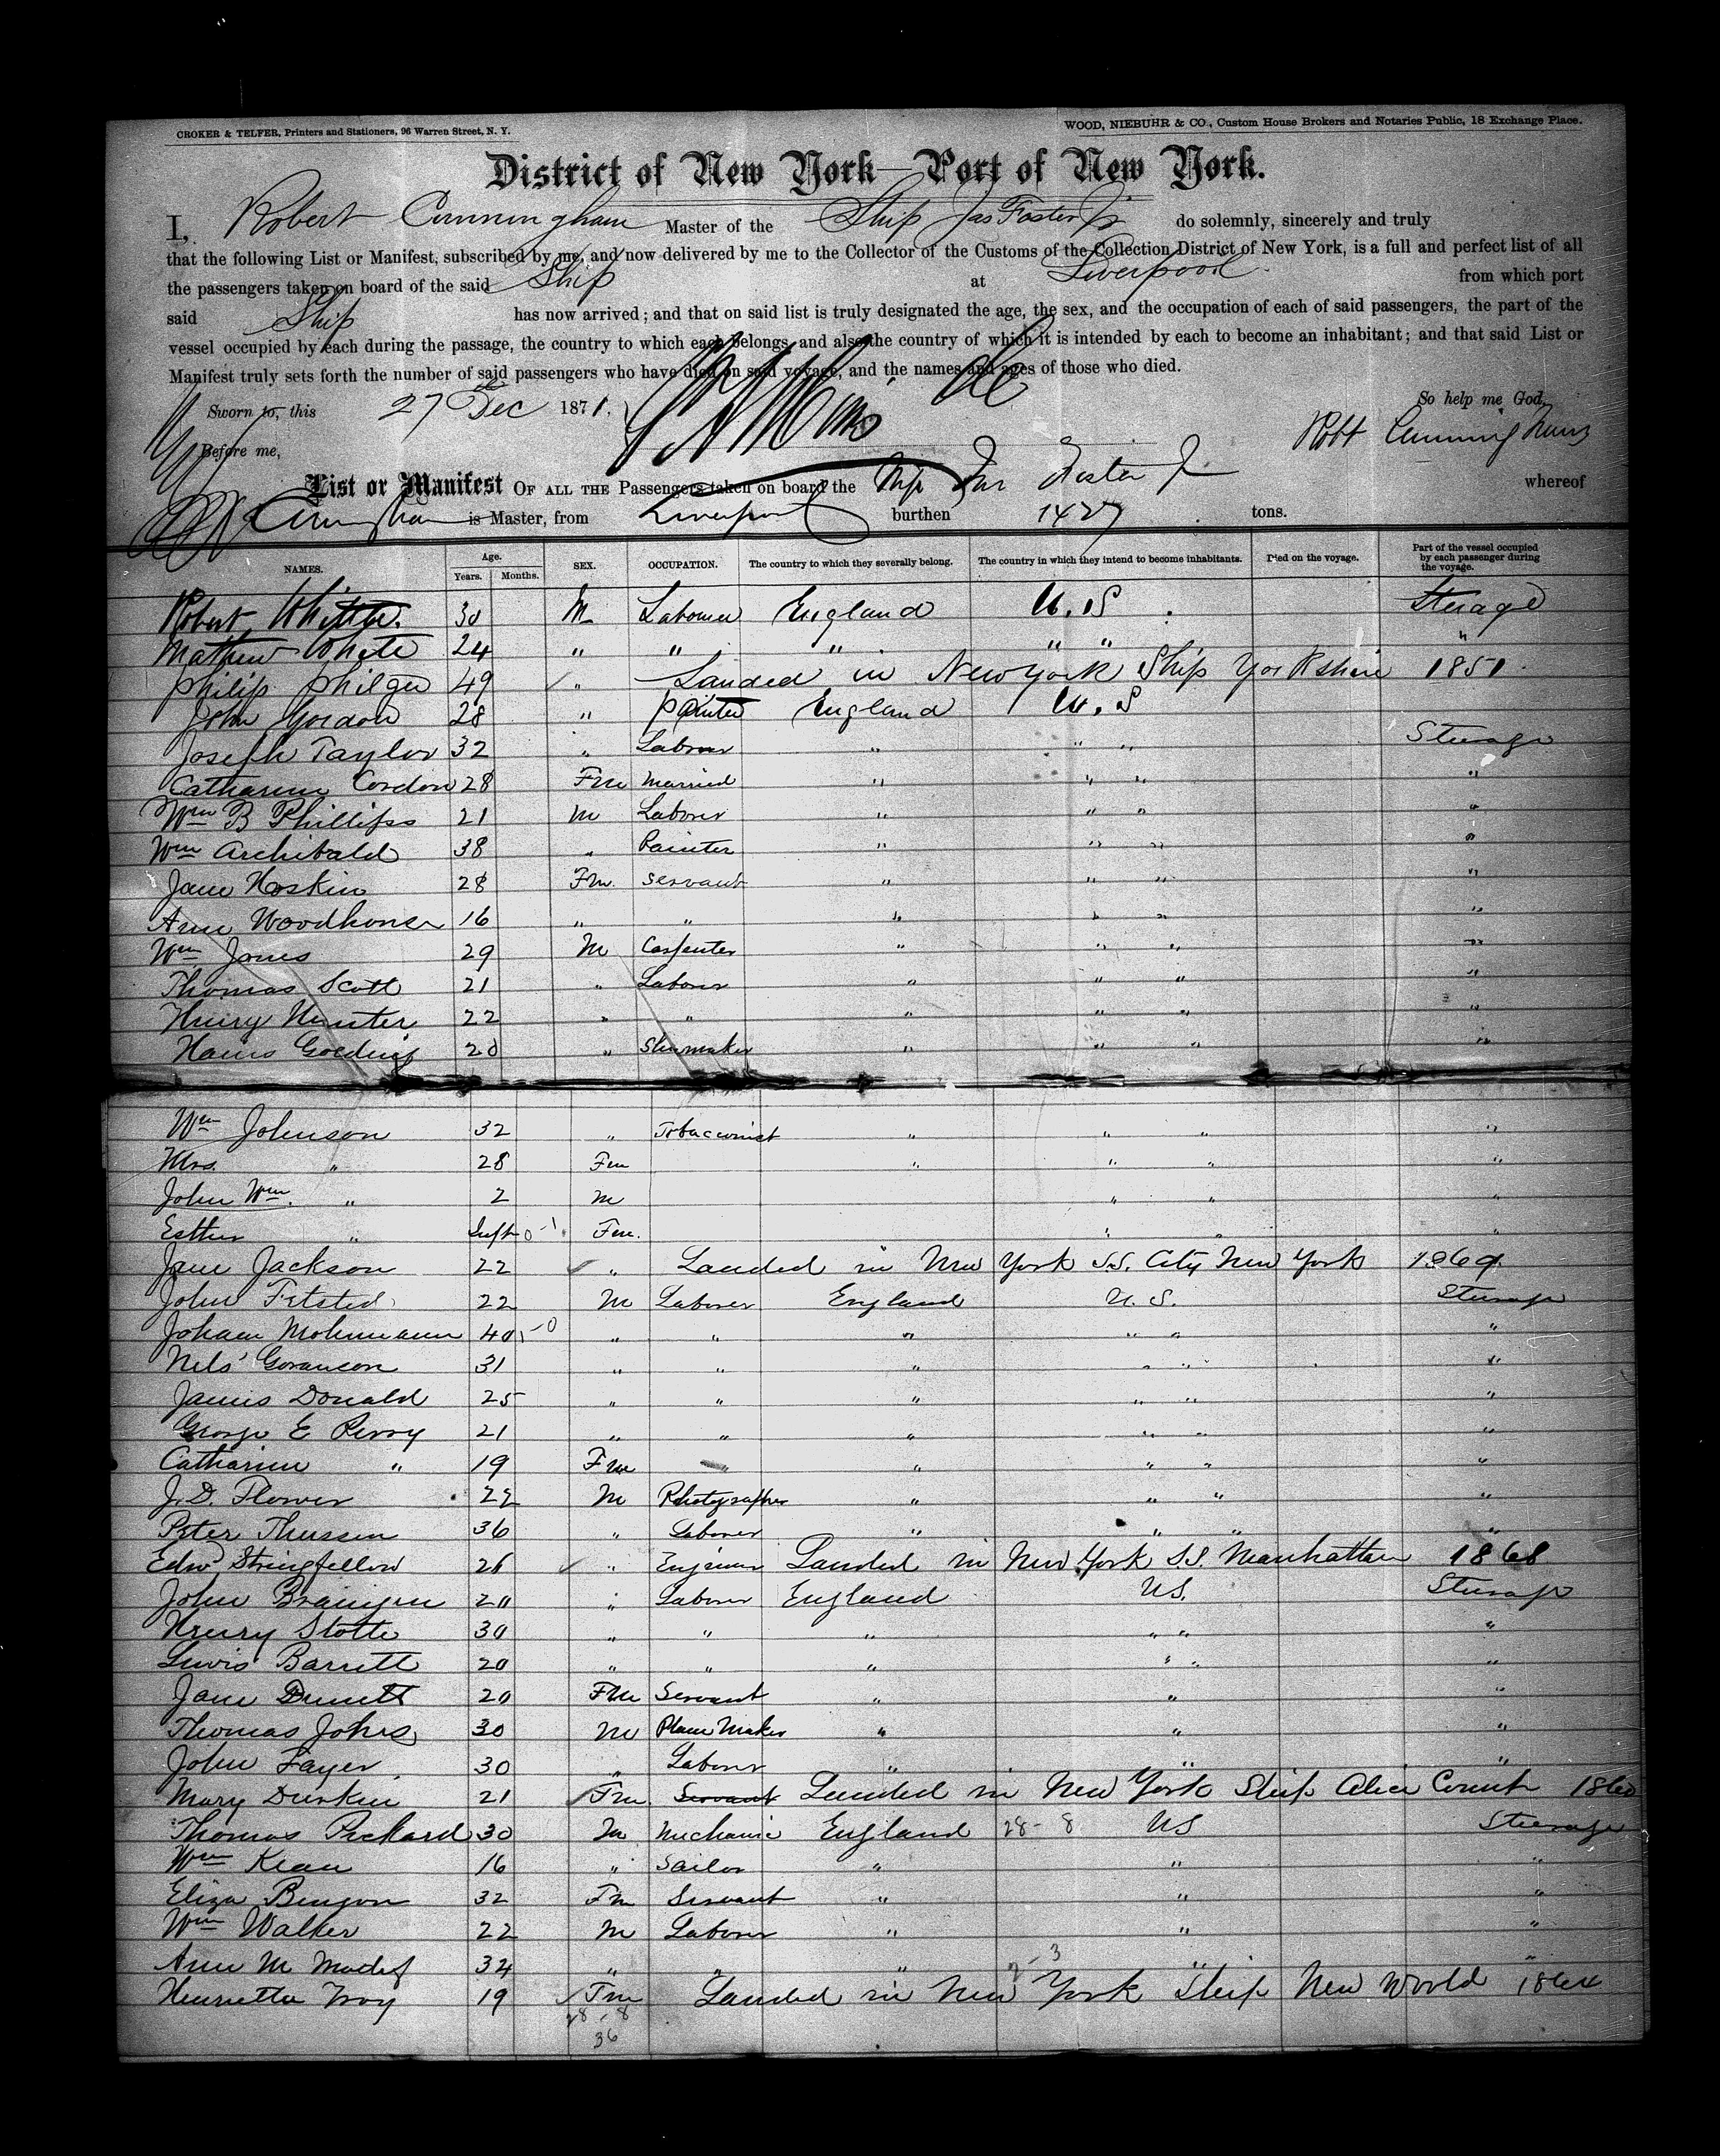 CROKER & TELFER, Printers and Stationers, 96 Warren Street, N. Y.
WOOD, NIEBUHR & CO., Custom House Brokers and Notaries Public, 18 Exchange Place.
District of New York—Port of New York.
I, Robert Cunningham Master of the Ship Jas Foster Jr do solemnly, sincerely and truly
that the following List or Manifest, subscribed by me, and now delivered by me to the Collector of the Customs of the Collection District of New York, is a full and perfect list of all
the passengers taken on board of the said Ship at Liverpool from which port
said Ship has now arrived; and that on said list is truly designated the age, the sex, and the occupation of each of said passengers, the part of the
vessel occupied by each during the passage, the country to which each belongs, and also the country of which it is intended by each to become an inhabitant; and that said List or
Manifest truly sets forth the number of said passengers who have died on said voyage, and the names and ages of those who died.
Sworn to, this 27 Dec 1871. So help me God,
Before me, Robt Cunningham
List or Manifest OF ALL THE Passengers taken on board the Ship Jas Foster Jr whereof
Cunningham is Master, from Liverpool burthen 1427 tons.
NAMES. Age. Years. Months. SEX. OCCUPATION. The country to which they severally belong. The country in which they intend to become inhabitants. Died on the voyage. Part of the vessel occupied by each passenger during the voyage.
Robert 30 M Laborer England U.S. Steerage
Mathew White 24 " " " " " "
Philip 49 " Landed in New York Ship Yorkshire 1851
John Gordon 28 " Painter England U.S
Joseph Taylor 32 " Laborer " " " Steerage
Catharine Gordon 28 Fm Married " " " "
Wm B Phillips 21 M Laborer " " " "
Wm Archibald 38 " Painter " " " "
Jane Hoskin 28 Fm. Servant " " " "
Ann Woodhouse 16 " " " " " "
Wm Jones 29 M Carpenter " " " "
Thomas Scott 21 " Laborer " " " "
Henry Hunter 22 " " " " " "
Hans 20 " Shumaker " " " "
Wm Johnson 32 " Tobacconist " " " "
Mrs. " 28 Fm " " " "
John Wm. " 2 M " " "
Esther " Inft 0-1 Fm. " " "
Jane Jackson 22 " Landed in New York S.S. City New York 1869
John 22 M Laborer England U.S. Steerage
Johann Mohrmann 40 " " " " " "
Nels Goranson 31 " " " " " "
James Donald 25 " " " " " "
George E Perry 21 " " " " " "
Catharine " 19 Fm " " " " "
J. D. Flower 22 M Photographer " " " "
Peter Thussen 36 " Laborer " " " "
Edwd Stringfellow 26 " Engineer Landed in New York S.S. Manhattan 1868
John 20 " Laborer England US. Steerage
Henry Stotte 30 " " " " " "
Lewis Barrett 20 " " " " " "
Jane 20 Fm Servant " " "
Thomas Johns 30 M Plane Maker " " "
John Fayer 30 " Laborer " " "
Mary Durkin 21 Fm. Servant Landed in New York Ship Alice 1860
Thomas Pickard 30 M Mechanic England 28-8 US Steerage
Wm Kean 16 " Sailor " " "
Eliza Benyon 32 Fm Servant " " "
Wm Walker 22 M Laborer " " "
Ann M 34 " " " " "
Henrietta Troy 19 Fm Landed in New York Ship New World 1864
28-8
36